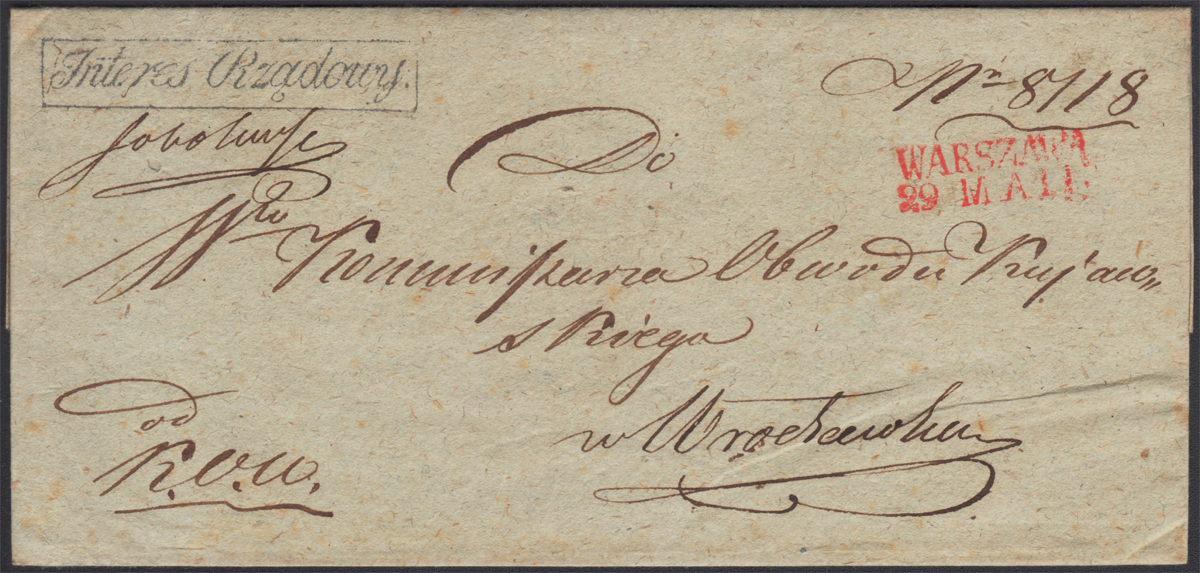 Interes Rządowy.
Nr 8718
Do
WARSZAWA
29 MAII.
Wgo Kommissarza Obwodu Kujaw„
skiego
w Wrocławku
od
K.O.W.